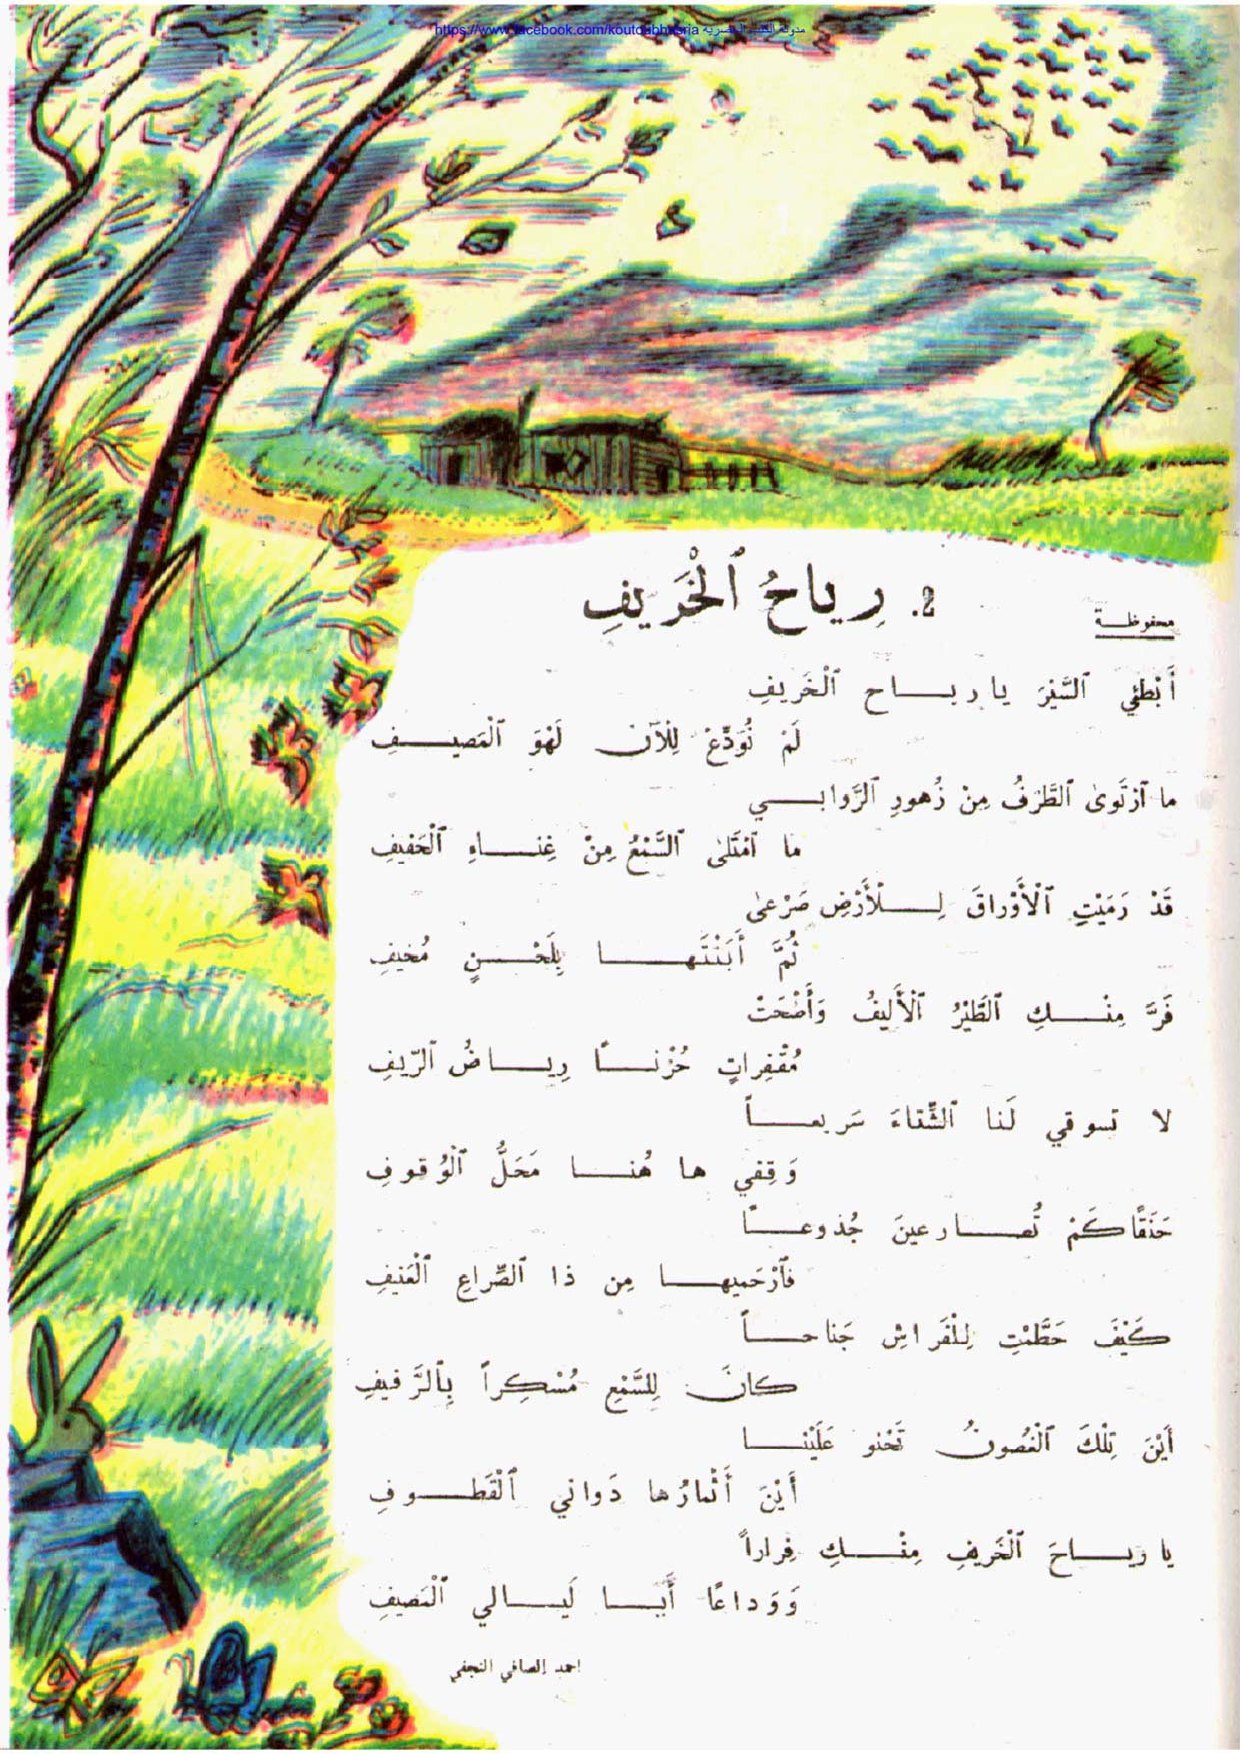 https://www.facebook.com/koutoubhasria مدونة الكتب الحصرية
محفوظـة
2. رِياحُ ٱلْخَريفِ
أَبْطئِي ٱلسَّيْرَ يا ريـــاح ٱلْخَريفِ
لَمْ نُوَدِّعْ لِلْآنَ لَهْوَ ٱلْمَصيـــفِ
ما ٱرْتَوىٰ ٱلطَّرْفُ مِنْ زُهورِ ٱلرَّوابـــي
ما ٱمْتَلىٰ ٱلسَّمْعُ مِنْ غِنـــاءِ ٱلْحَفيفِ
قَدْ رَمَيْتِ ٱلْأَوْراقَ لِـــلْأَرْضِ صَرْعىٰ
ثُمَّ أَبَنْتَهـــا بِلَحْـــنٍ مُخيفِ
فَرَّ مِنْـــكِ ٱلطَّيْرُ ٱلْأَليفُ وَأَضْحَتْ
مُقْفِراتٍ حُزْنـــًا رِيـــاضُ ٱلرّيفِ
لا تسوقي لَنا ٱلشِّتاءَ سَريعـــاً
وَقِفي ها هُنـــا مَحَلُّ ٱلْوُقوفِ
حَنَقًا كَمْ تُصـــارعينَ جُذوعـــًا
فَٱرْحَميهـــا مِن ذا ٱلصِّراعِ ٱلْعَنيفِ
كَيْفَ حَطَّمْتِ لِلْفَراشِ جَناحـــاً
كانَ لِلسَّمْعِ مُسْكِراً بِٱلرَّفيفِ
أَيْنَ تِلْكَ ٱلْغُصونُ تَحْنو عَلَيْنـــا
أَيْنَ أَثْمارُها دَواني ٱلْقَطـــوفِ
يا ريـــاحَ ٱلْخَريفِ مِنْـــكِ فِراراً
وَوَداعًا أَيـــا لَيـــالي ٱلْمَصيفِ
احمد الصافي النجفي